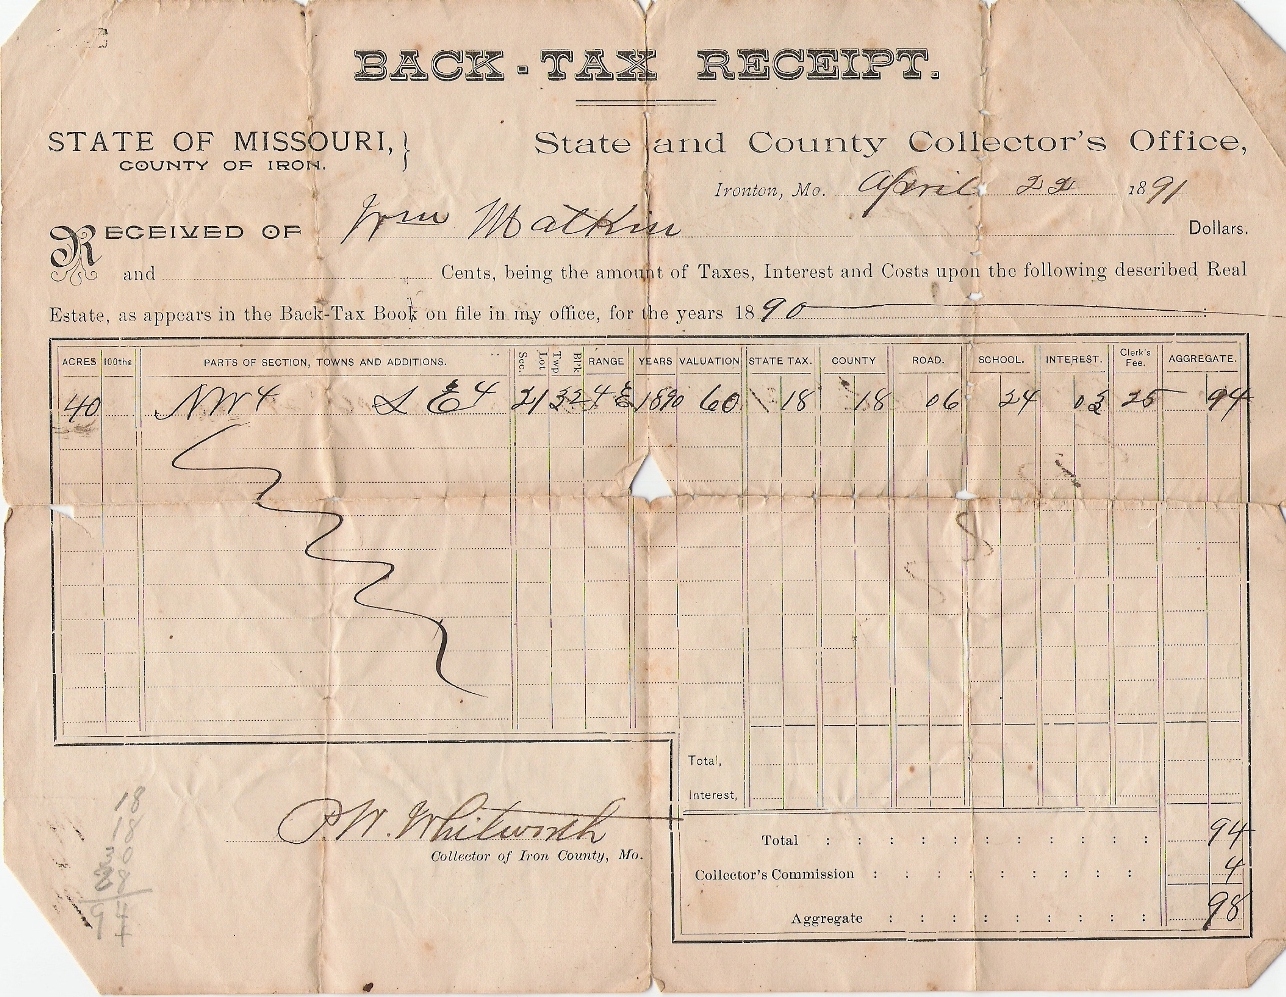 BACK-TAX RECEIPT.
STATE OF MISSOURI, } State and County Collector's Office,
COUNTY OF IRON.
Ironton, Mo. April 22 1891
RECEIVED OF Wm Matkin Dollars.
and Cents, being the amount of Taxes, Interest and Costs upon the following described Real
Estate, as appears in the Back-Tax Book on file in my office, for the years 1890
ACRES 100ths PARTS OF SECTION, TOWNS AND ADDITIONS. Sec. Lot Twp Blk RANGE YEARS VALUATION STATE TAX. COUNTY ROAD. SCHOOL. INTEREST. Clerk's Fee. AGGREGATE.
40 NW4 SE4 21 32 4E 1890 60 18 18 06 24 03 25 94
Total,
Interest,
Total : : : : : : : : : : : 94
P.W. Whitworth
Collector of Iron County, Mo.
Collector's Commission : : : : : : : : : 4
Aggregate : : : : : : : : : 98
18
18
94